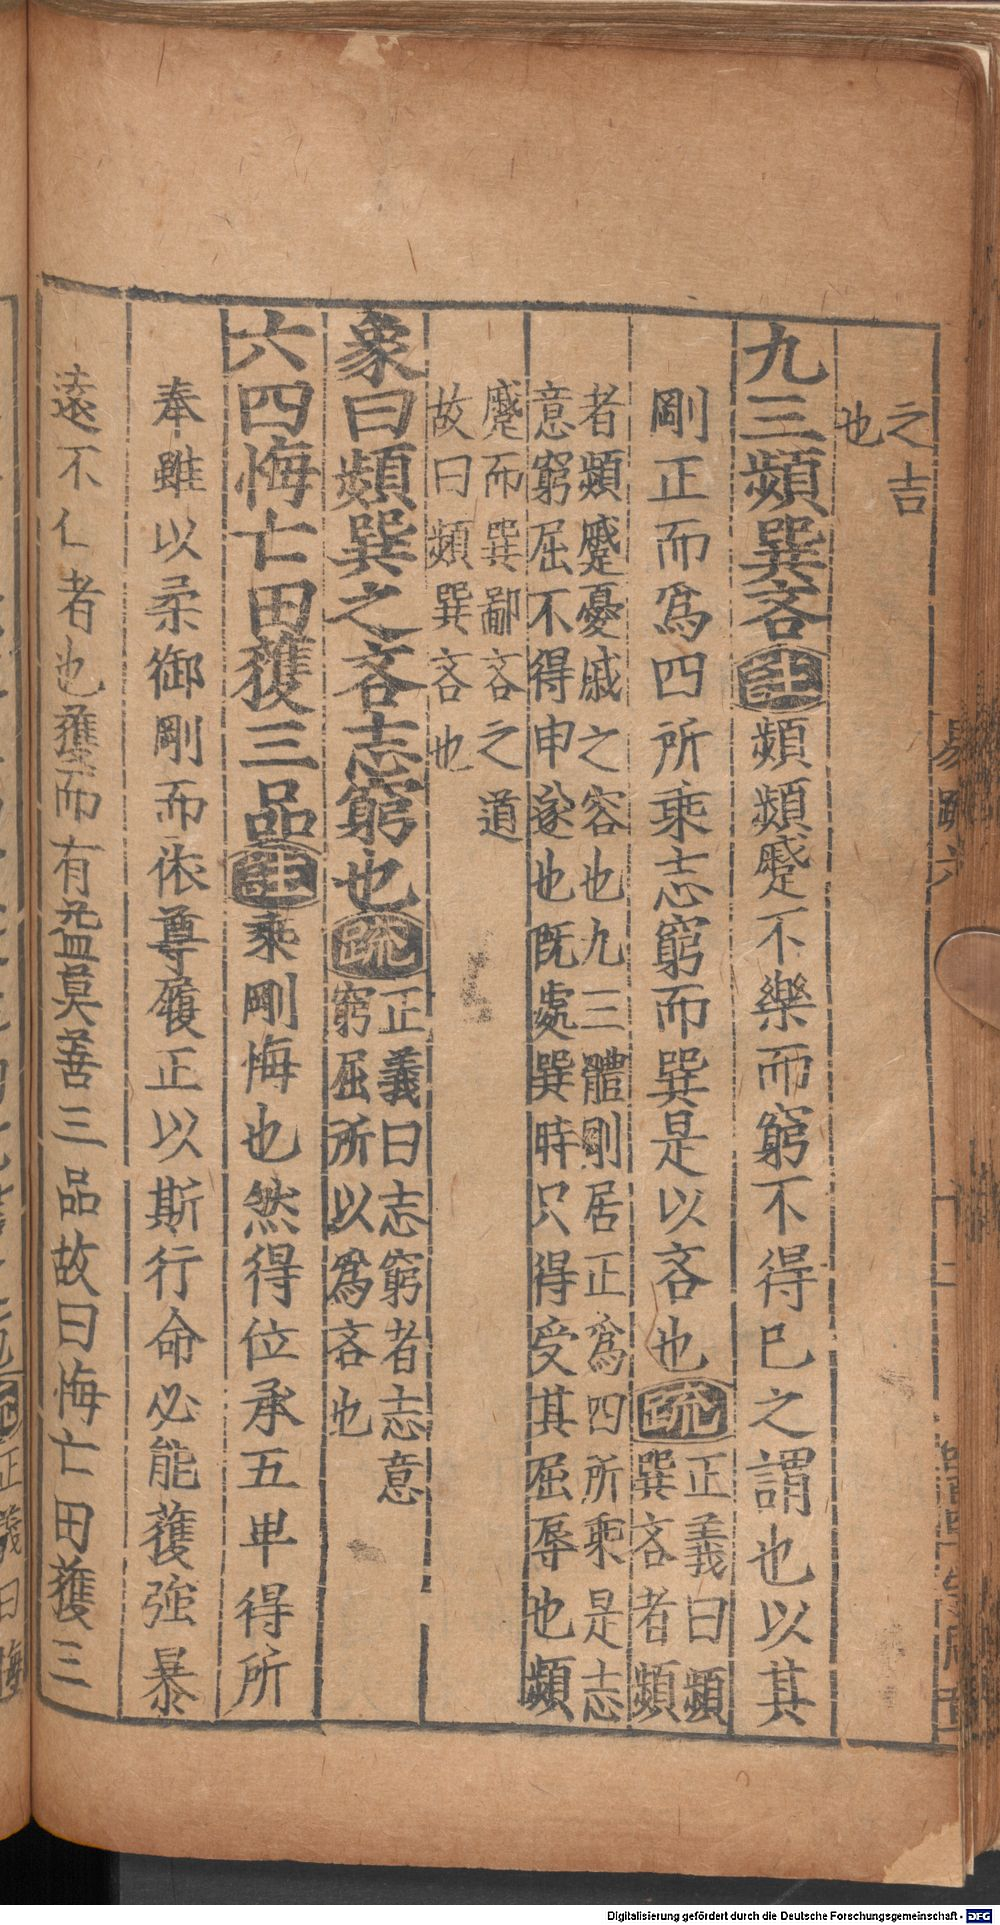 之吉
也
九三頻巽吝註頻頻蹙不樂而窮不得已之謂也以其
剛正而爲四所乘志窮而巽是以吝也疏正義曰頻
巽吝者頻
者頻蹙憂戚之容也九三體剛居正爲四所乘是志
意窮屈不得申遂也旣處巽時只得受其屈辱也頻
蹙而巽鄙吝之道
故曰頻巽吝也
象曰頻巽之吝志窮也疏正義曰志窮者志意
窮屈所以爲吝也
六四悔亡田獲三品註乘剛悔也然得位承五卑得所
奉雖以柔御剛而依尊履正以斯行命必能獲強暴
遠不仁者也獲而有益莫善三品故曰悔亡田獲三
易疏六
Digitalisierung gefördert durch die Deutsche Forschungsgemeinschaft - DFG